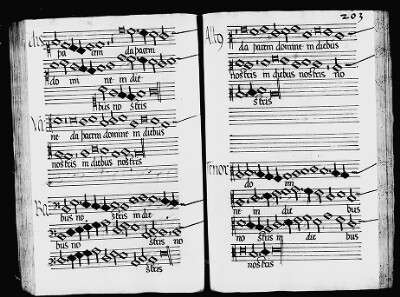 pa cem da pacem
do mi ne in die
bus no stris
ne da pacem domine in diebus
nostris in diebus nostris
Ba
bus no stris in die
bus no stris no
stris
203
Alto
da pacem domine in diebus
nostris in diebus nostris no
stris
Tenor
do mi
ne in die bus
no stris in die bus
nostris